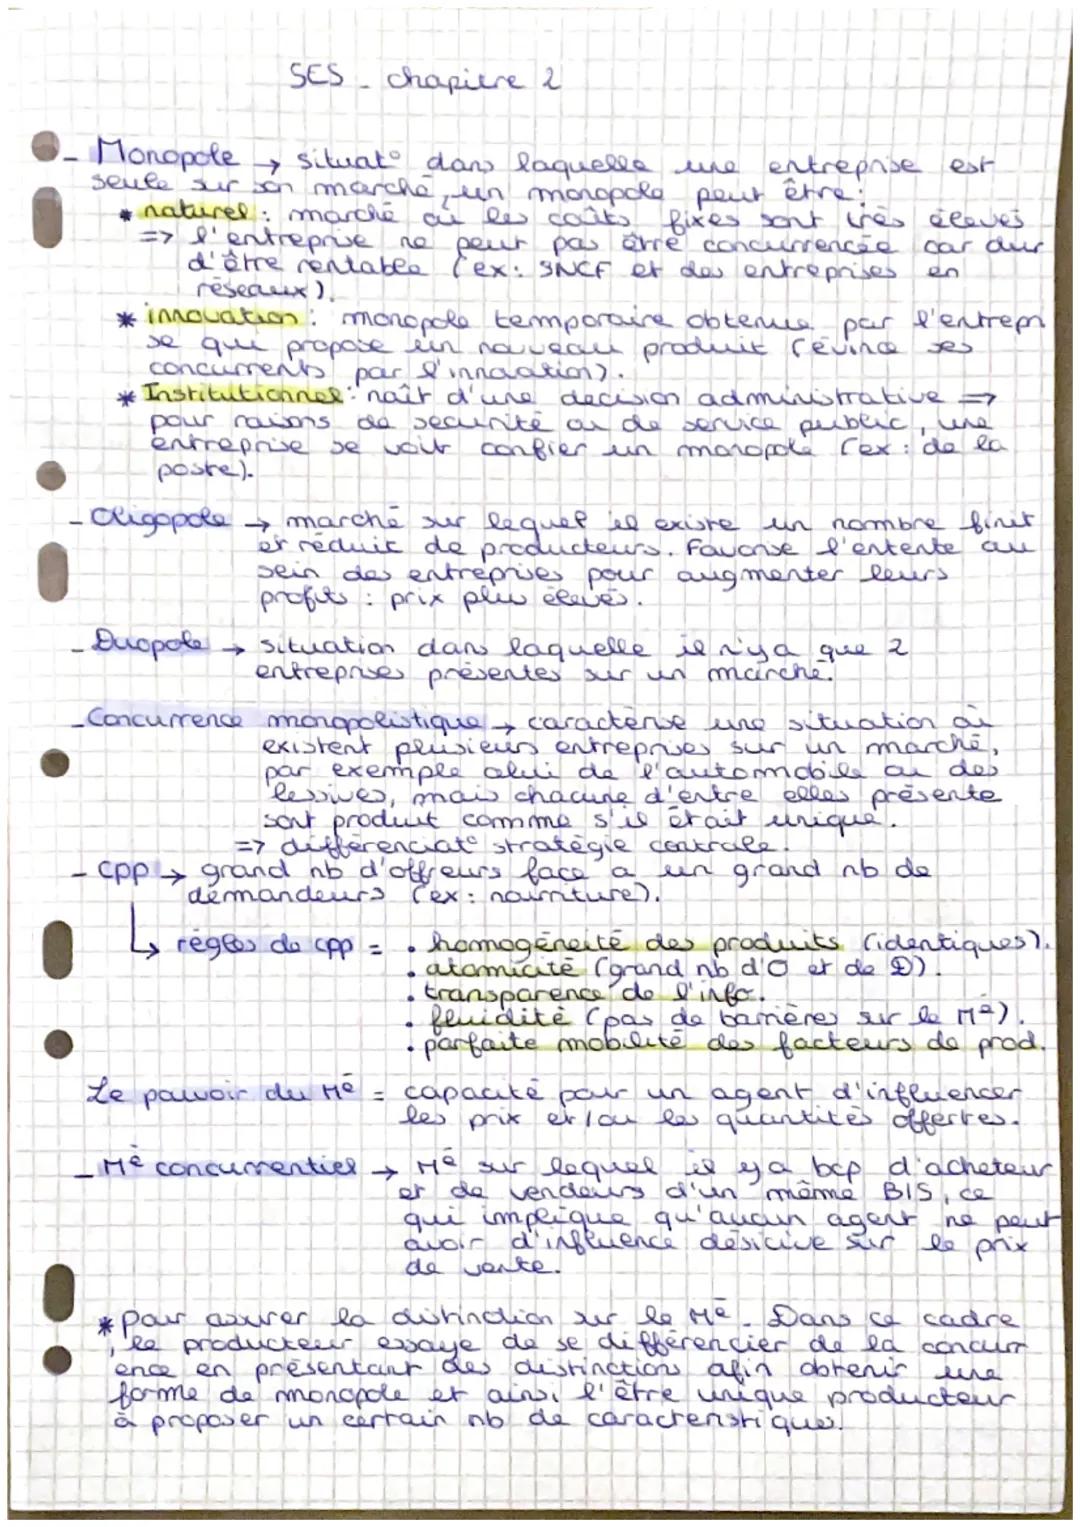 SES - chapitre 2
- Monopole → situat° dans laquelle une entreprise est
seule sur son marché, un monopole peut être :
* naturel : marché où les coûts fixes sont très élevés
=> l'entreprise ne peut pas être concurrencée car dur
d'être rentable (ex : SNCF et des entreprises en
réseaux).
* innovation : monopole temporaire obtenue par l'entrepri
se qui propose un nouveau produit (évince ses
concurrents par l'innovation).
* Institutionnel : naît d'une decision administrative =>
pour raisons de sécurité ou de service public, une
entreprise se voit confier un monopole (ex : de la
poste).
- Oligopole → marché sur lequel il existe un nombre finit
et réduit de producteurs. Favorise l'entente au
sein des entreprises pour augmenter leurs
profits : prix plus élevés.
- Duopole → situation dans laquelle il n'y a que 2
entreprises présentes sur un marché.
- Concurrence monopolistique → caractérise une situation où
existent plusieurs entreprises sur un marché,
par exemple celui de l'automobile ou des
lessives, mais chacune d'entre elles présente
sont produit comme s'il était unique.
=> différenciat° stratégie centrale.
- cpp → grand nb d'offreurs face a un grand nb de
demandeurs (ex : nourriture).
↳ règles de cpp = • homogénéité des produits (identiques).
• atomicité (grand nb d'O et de D).
• transparence de l'info.
• fluidité (pas de barrières sur le Mé).
• parfaite mobilité des facteurs de prod.
Le pouvoir du Mé = capacité pour un agent d'influencer
les prix et/ou les quantités offertes.
- Mé concurrentiel → Mé sur lequel il y a bcp d'acheteur
et de vendeurs d'un même BIS, ce
qui implique qu'aucun agent ne peut
avoir d'influence désicive sur le prix
de vente.
* Pour assurer la distinction sur le Mé. Dans ce cadre
, le producteur essaye de se différencier de la concurr
ence en présentant des distinctions afin dbtenir une
forme de monopole et ainsi l'être unique producteur
à proposer un certain nb de caractéristiques.